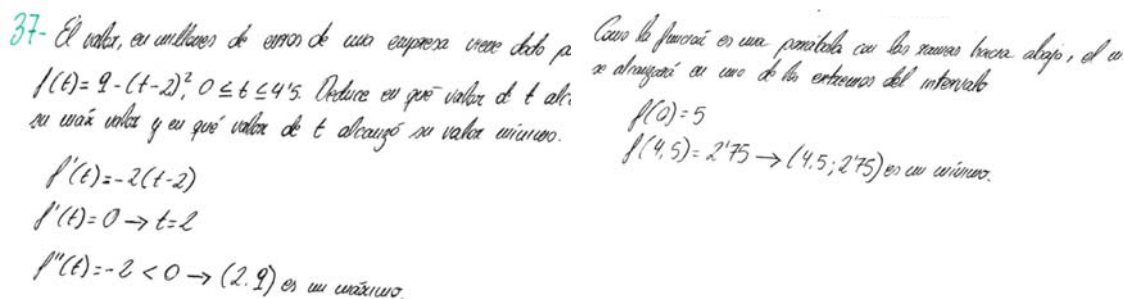 37- El valor, en millones de euros de una empresa viene dado p
f(t)=9-(t-2)², 0≤t≤4'5. Deduce en qué valor de t alc
su máx valor y en qué valor de t alcanzó su valor mínimo.
f'(t)=-2(t-2)
f'(t)=0→t=2
f''(t)=-2<0→(2.9) es un máximo.
Como la función es una parábola con las ramas hacia abajo, el m
se alcanzará en uno de los extremos del intervalo
f(0)=5
f(4,5)=2'75→(4.5;2'75) es un mínimo.